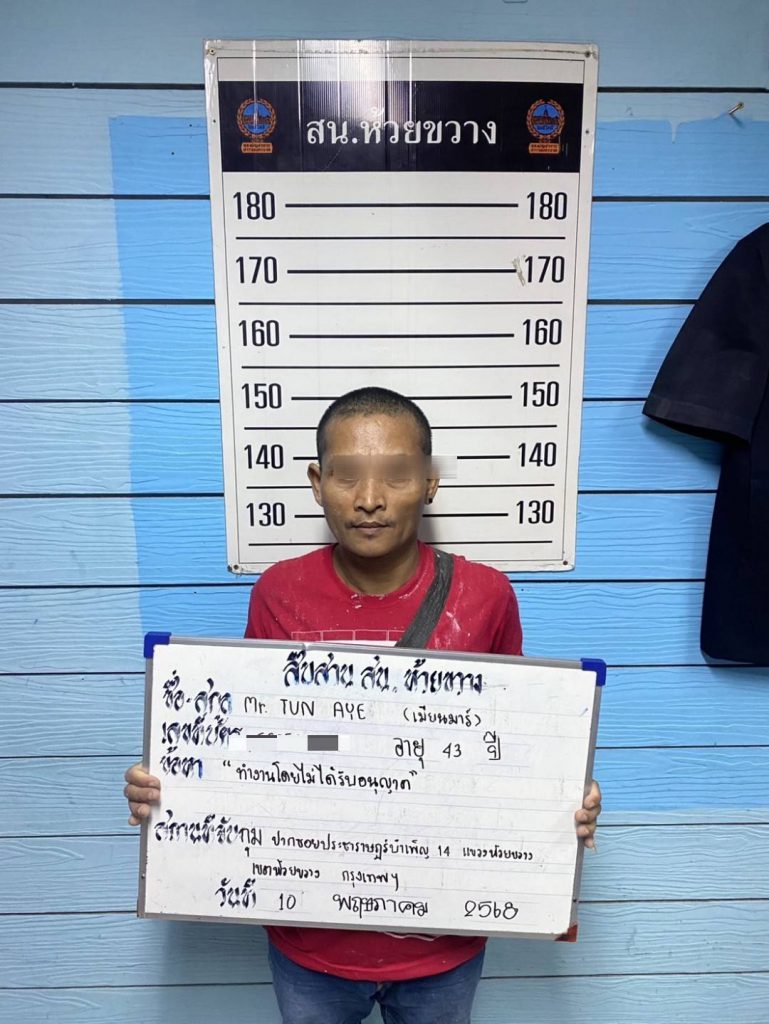 สน.ห้วยขวาง
180 180
170 170
160 160
150 150
140 140
130 130
สืบสวน สน. ห้วยขวาง
ชื่อ-สกุล Mr. TUN AYE (เมียนมาร์)
เลขที่บัตร อายุ 43 ปี
ข้อหา "ทำงานโดยไม่ได้รับอนุญาต"
สถานที่จับกุม ปากซอยประชาราษฎร์บำเพ็ญ 14 แขวงห้วยขวาง
เขตห้วยขวาง กรุงเทพฯ
วันที่ 10 พฤษภาคม 2568